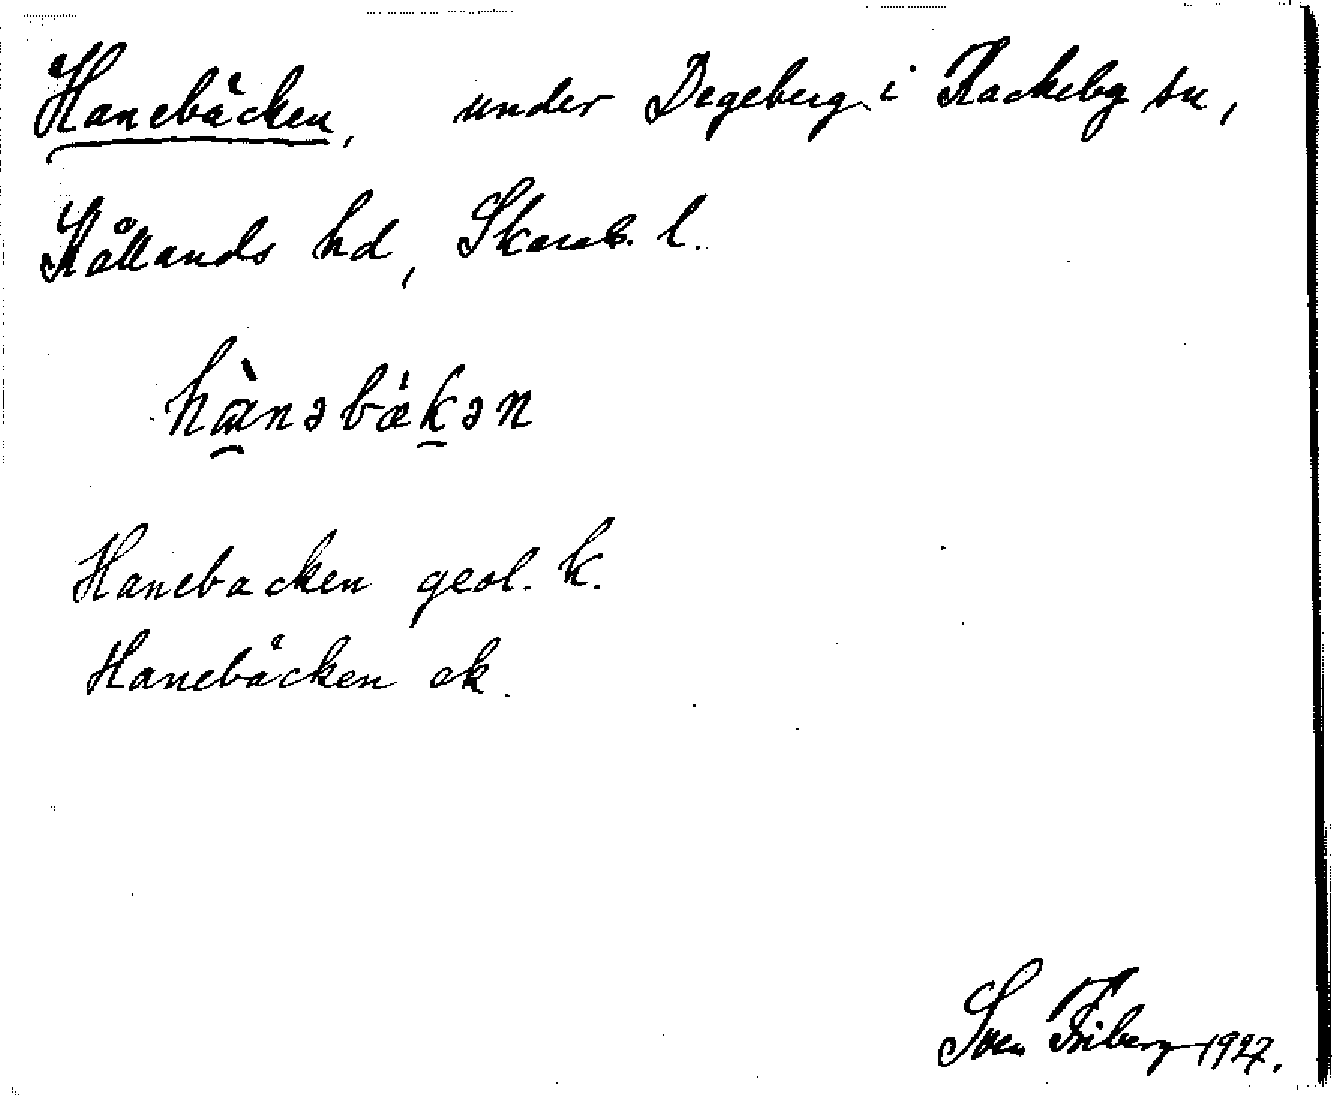 Hanebäcken, under Degeberg i Rackeby sn,
Kållands hd, Skarab. l.
hànəbǽkən
Hanebacken geol. k.
Hanebäcken ek.
Sven Friberg 1927.